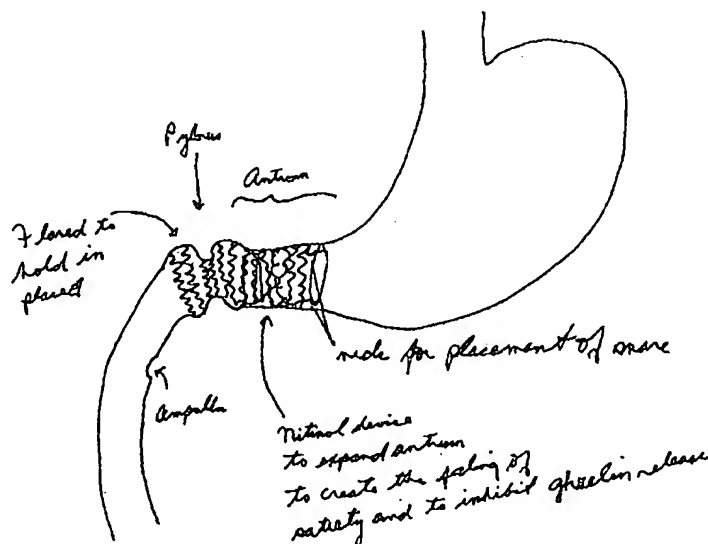 Pylorus
Antrum
Flared to
hold in
placed
Ampulla
for placement of snare
Nitinol device
to expand antrum
to create the feeling of
satiety and to inhibit ghrelin release